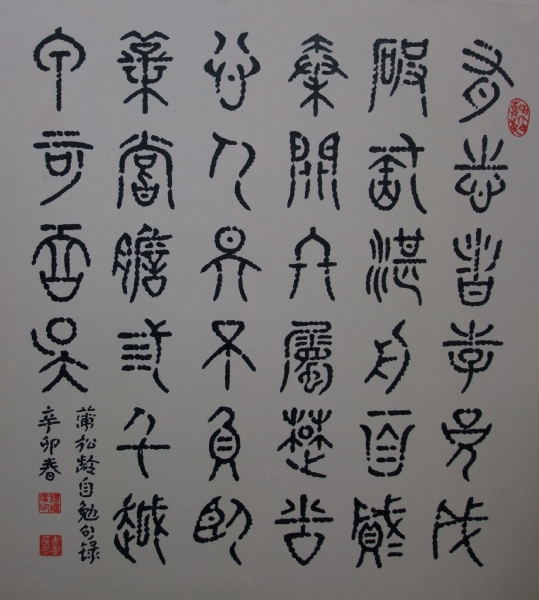 有志者事竟成
破釜湛舟百貳
秦關終屬楚苦
心人天不負臥
薪嘗膽弎千越
甲可吞吳
蒲松齡自勉句録
辛卯春